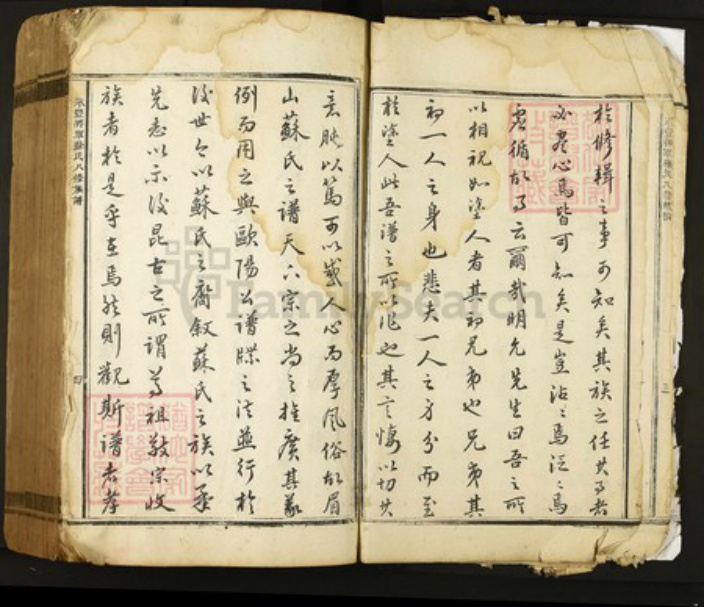 於修輯之事可知矣其族之任其事者
必盡心焉皆可知矣是豈沾沾焉泛泛焉
虛循故事云爾哉明允先生曰吾之所
以相視如塗人者其初兄弟也兄弟其
初一人之身也悲夫一人之身分而至
於塗人此吾譜之所以作也其言悽以切其
意眇以篤可以感人心而厚風俗故眉
山蘇氏之譜天下宗之尚之推廣其義
例而用之與歐陽公譜牒之法並行於
後世今以蘇氏之裔敘蘇氏之族以承
先志以示後昆古之所謂尊祖敬宗收
族者於是乎在焉然則觀斯譜者孝
氏八修族譜
三
四
FamilySearch